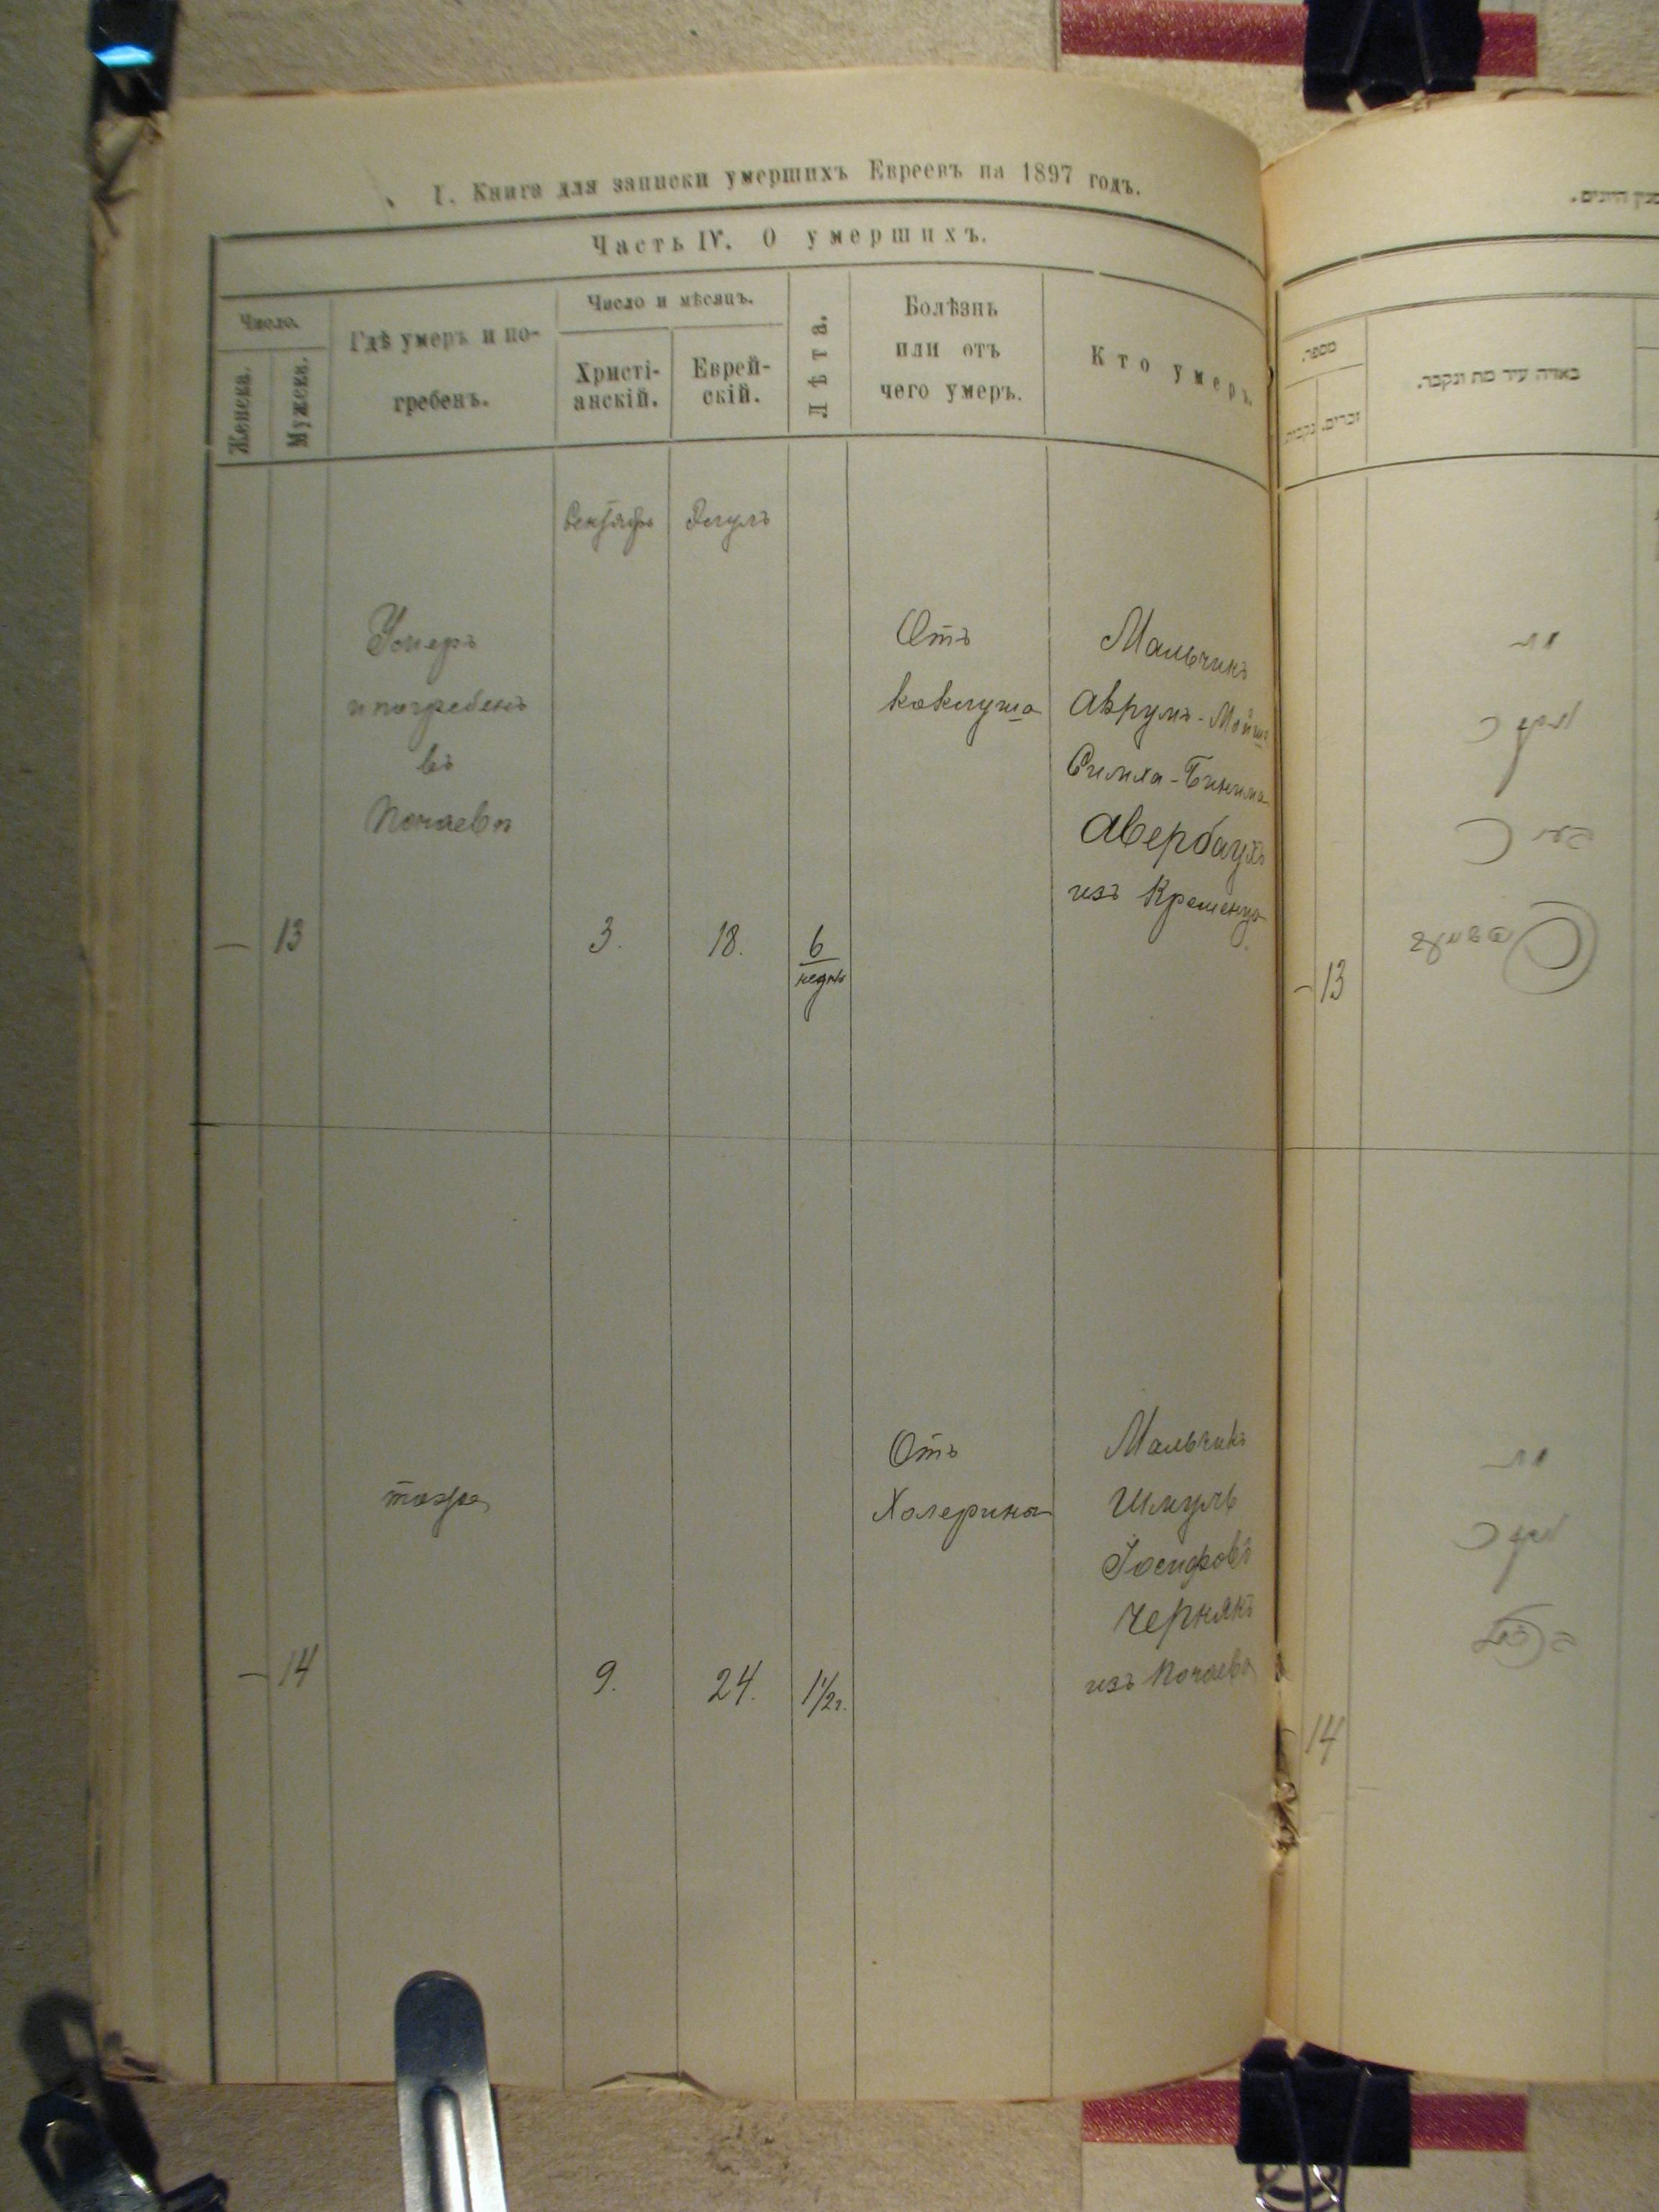 I. Книга для записки умершихъ Евреевъ на 1897 годъ.
Часть IV. О умершихъ.
Число.
Женска.
Мужеска.
Гдѣ умеръ и по-
гребенъ.
Число и мѣсяцъ.
Христі-
анскій.
Еврей-
скій.
Лѣта.
Болѣзнь
или отъ
чего умеръ.
Кто умеръ.
Сентябрь
Элулъ
Умеръ
и погребенъ
въ
Почаевѣ
— 13
3.
18.
6
недѣль
Отъ
коклуша
Мальчикъ
Аврумъ-Мойша
Симха-Бинима
Авербаухъ
изъ Кременца
тоже
— 14
9.
24.
1 1/2 г.
Отъ
Холерина
Мальчикъ
Шмуль
Іосифовъ
Чернякъ
изъ Почаева
מספר.
זכרים.
נקבות.
באיזה עיר מת ונקבר.
– 13
14